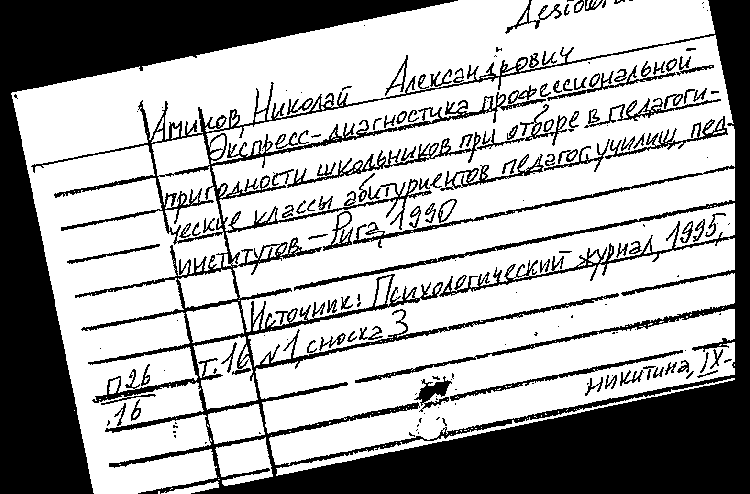 Аминов, Николай Александрович
Экспресс-диагностика профессиональной
пригодности школьников при отборе в педагоги-
ческие классы абитуриентов педагог. училищ, пед-
институтов. – Рига, 1990
Источник: Психологический журнал, 1995,
т. 16, N1, сноска 3
П26
16
Никитина, IX-